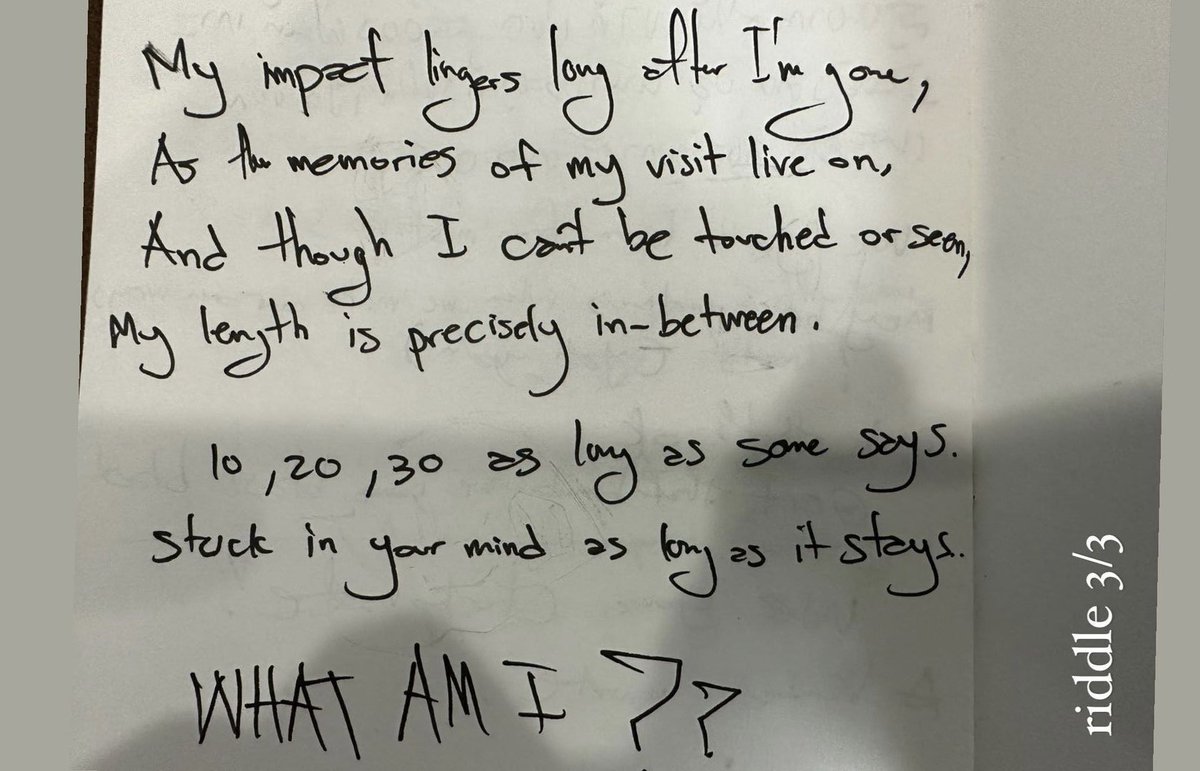 My impact lingers long after I'm gone,
As the memories of my visit live on,
And though I can't be touched or seen,
My length is precisely in-between.
10, 20, 30 as long as some says.
stuck in your mind as long as it stays.
WHAT AM I??
riddle 3/3